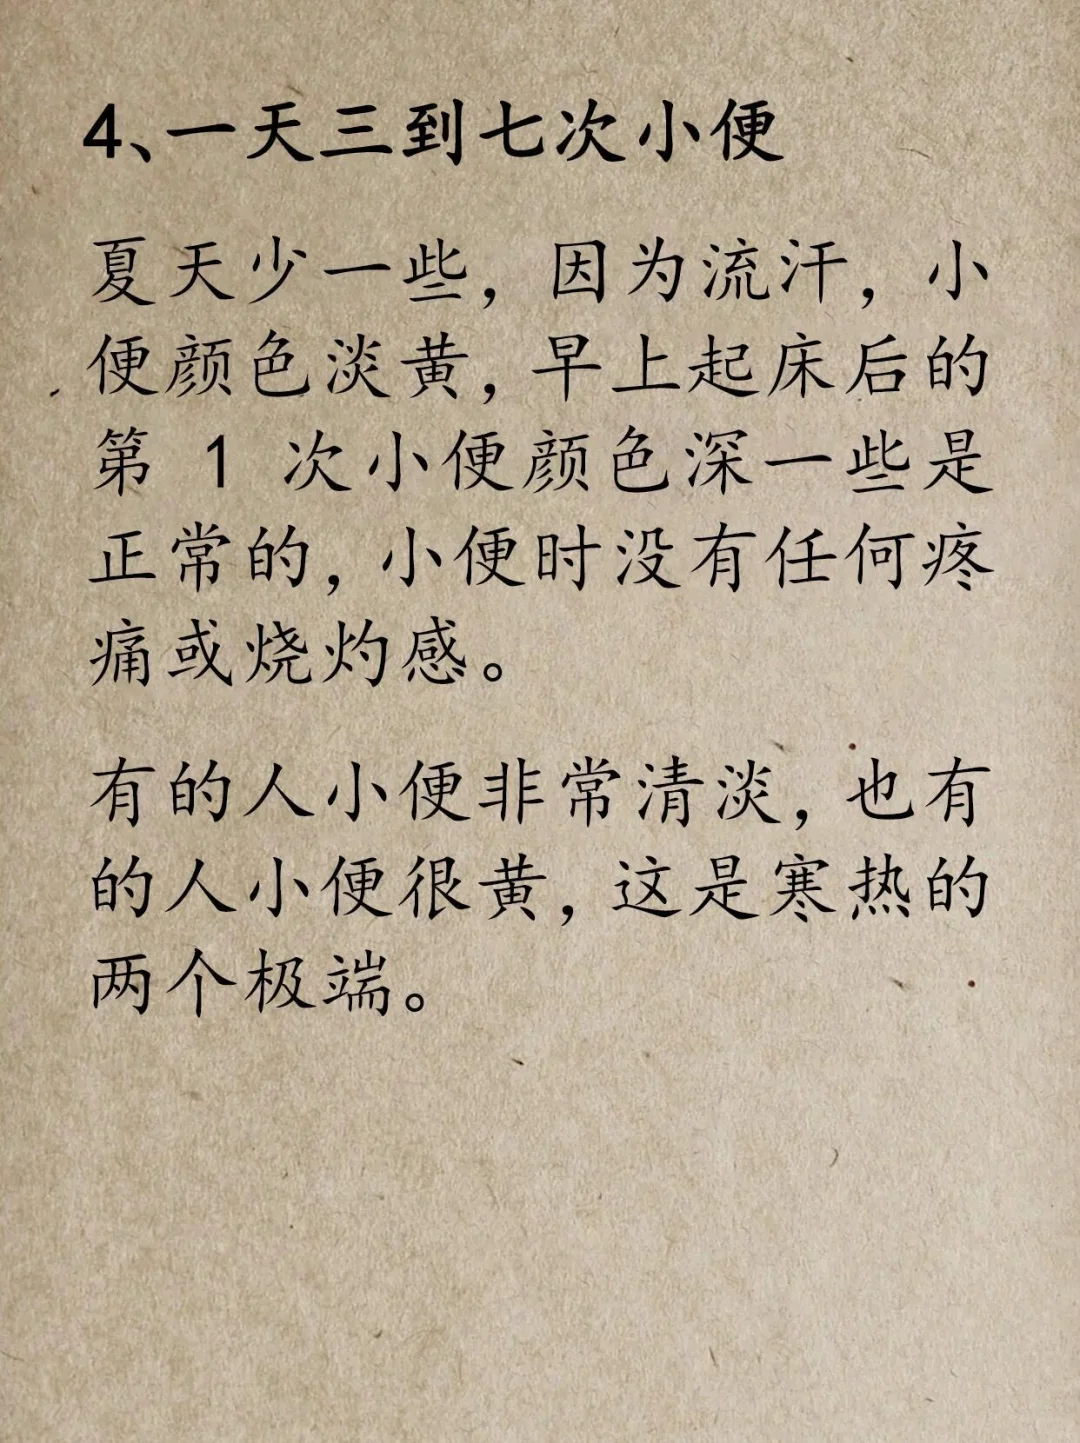 4、一天三到七次小便
夏天少一些，因为流汗，小
便颜色淡黄，早上起床后的
第 1 次小便颜色深一些是
正常的，小便时没有任何疼
痛或烧灼感。
有的人小便非常清淡，也有
的人小便很黄，这是寒热的
两个极端。